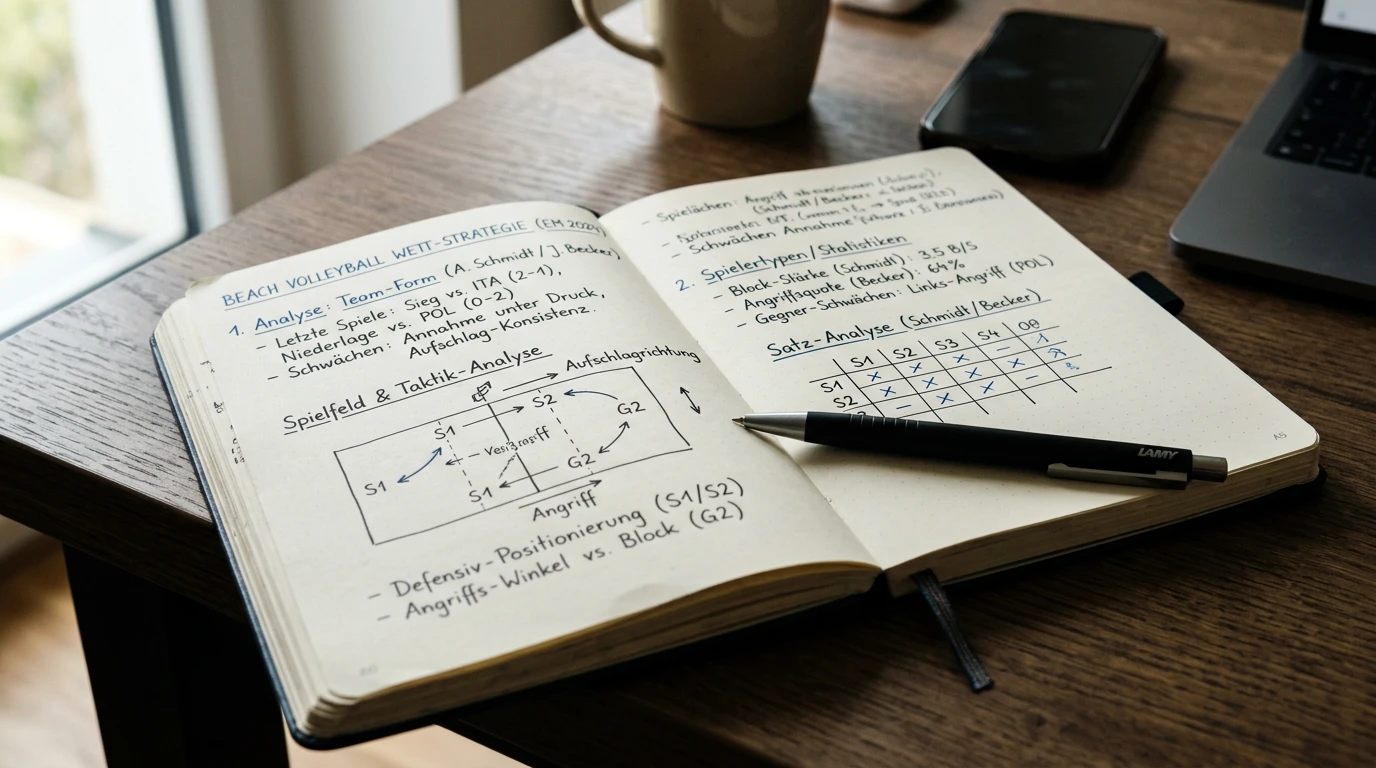 BEACH VOLLEYBALL WETT-STRATEGIE (EM 2024)
1. Analyse: Team-Form (A. Schmidt / J. Becker)
- Letzte Spiele: Sieg vs. ITA (2-1),
Niederlage vs. POL (0-2)
- Schwächen: Annahme unter Druck,
Aufschlag-Konsistenz.
Spielfeld & Taktik-Analyse
Aufschlagrichtung
S1
S2
G2
S1
S1
G2
Angriff
- Defensiv-Positionierung (S1/S2)
- Angriffs-Winkel vs. Block (G2)
- Spielächen: Angriff
(Schmidt/Becker:
- Schwächen Annahme
2. Spielertypen/Statistiken
- Block-Stärke (Schmidt): 3.5 B/S
- Angriffsquote (Becker): 64%
- Gegner-Schwächen: Links-Angriff (POL)
Satz-Analyse (Schmidt/Becker)
S1 S2 S3 S4
S1 x x x - 1
S2 x x x -
- x x -
LAMY